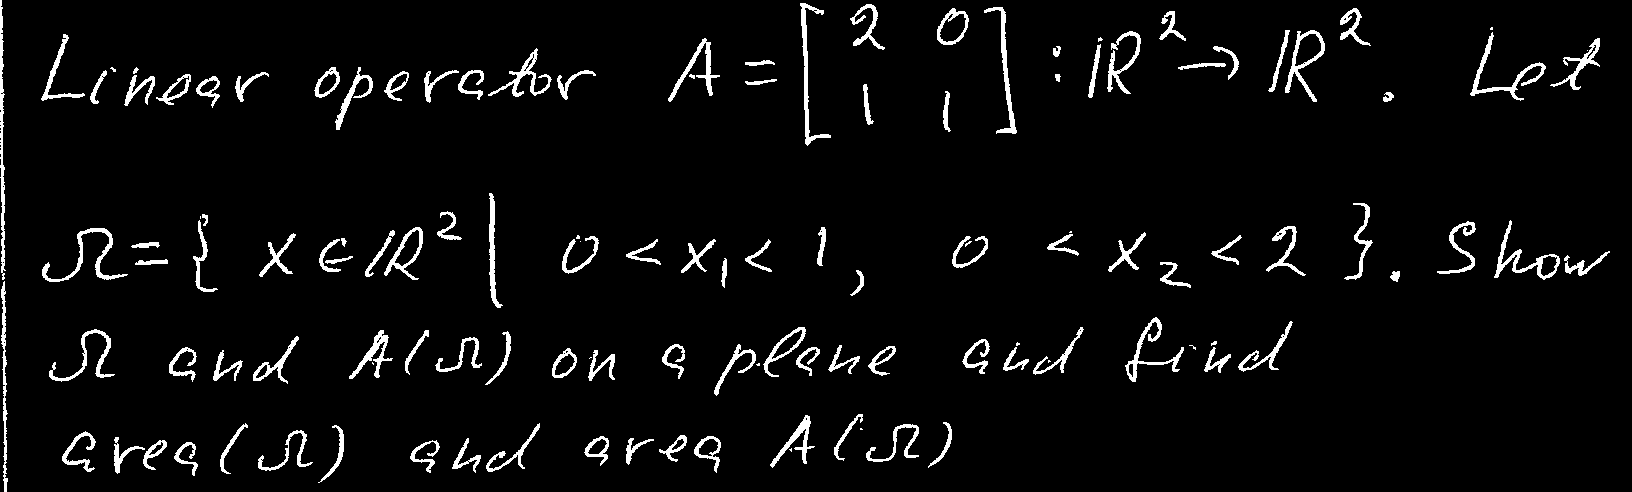 Linear operator A = [2 0; 1 1] : ℝ² → ℝ². Let
Ω = { x ∈ ℝ² | 0 < x₁ < 1, 0 < x₂ < 2 }. Show
Ω and A(Ω) on a plane and find
area(Ω) and area A(Ω)